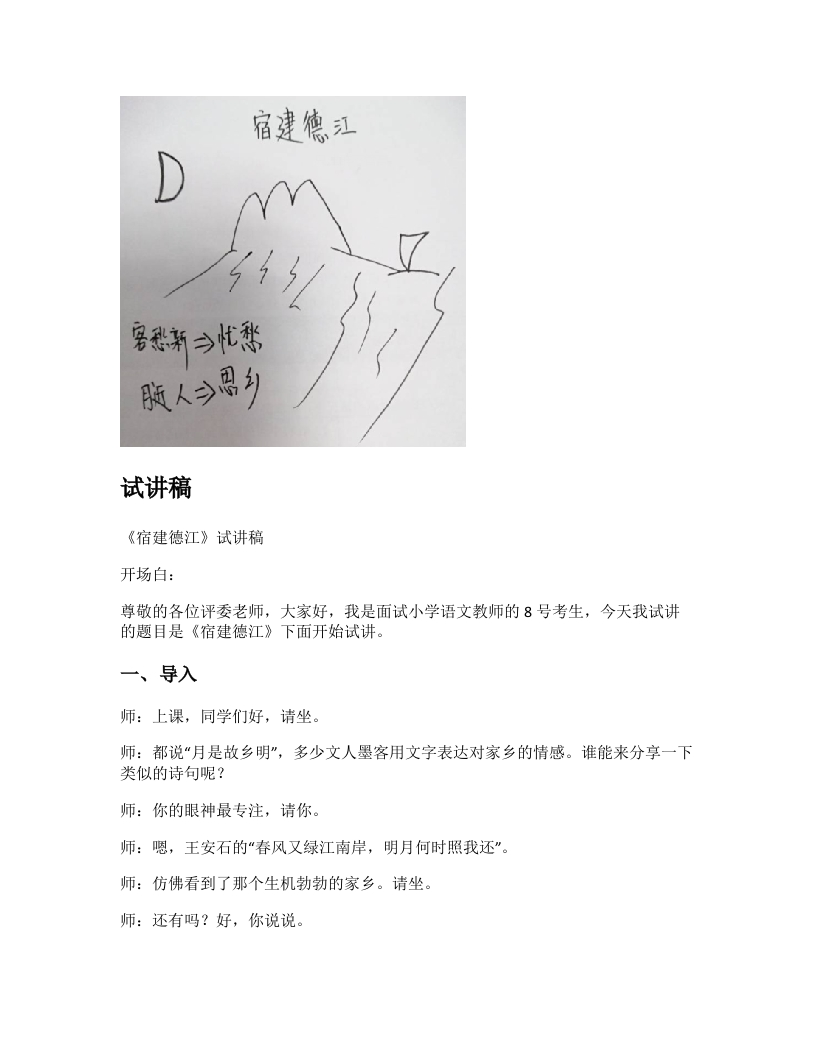 宿建德江
客愁新⇒忧愁
月近人⇒思乡
试讲稿
《宿建德江》试讲稿
开场白：
尊敬的各位评委老师，大家好，我是面试小学语文教师的 8 号考生，今天我试讲
的题目是《宿建德江》下面开始试讲。
一、导入
师：上课，同学们好，请坐。
师：都说“月是故乡明”，多少文人墨客用文字表达对家乡的情感。谁能来分享一下
类似的诗句呢？
师：你的眼神最专注，请你。
师：嗯，王安石的“春风又绿江南岸，明月何时照我还”。
师：仿佛看到了那个生机勃勃的家乡。请坐。
师：还有吗？好，你说说。